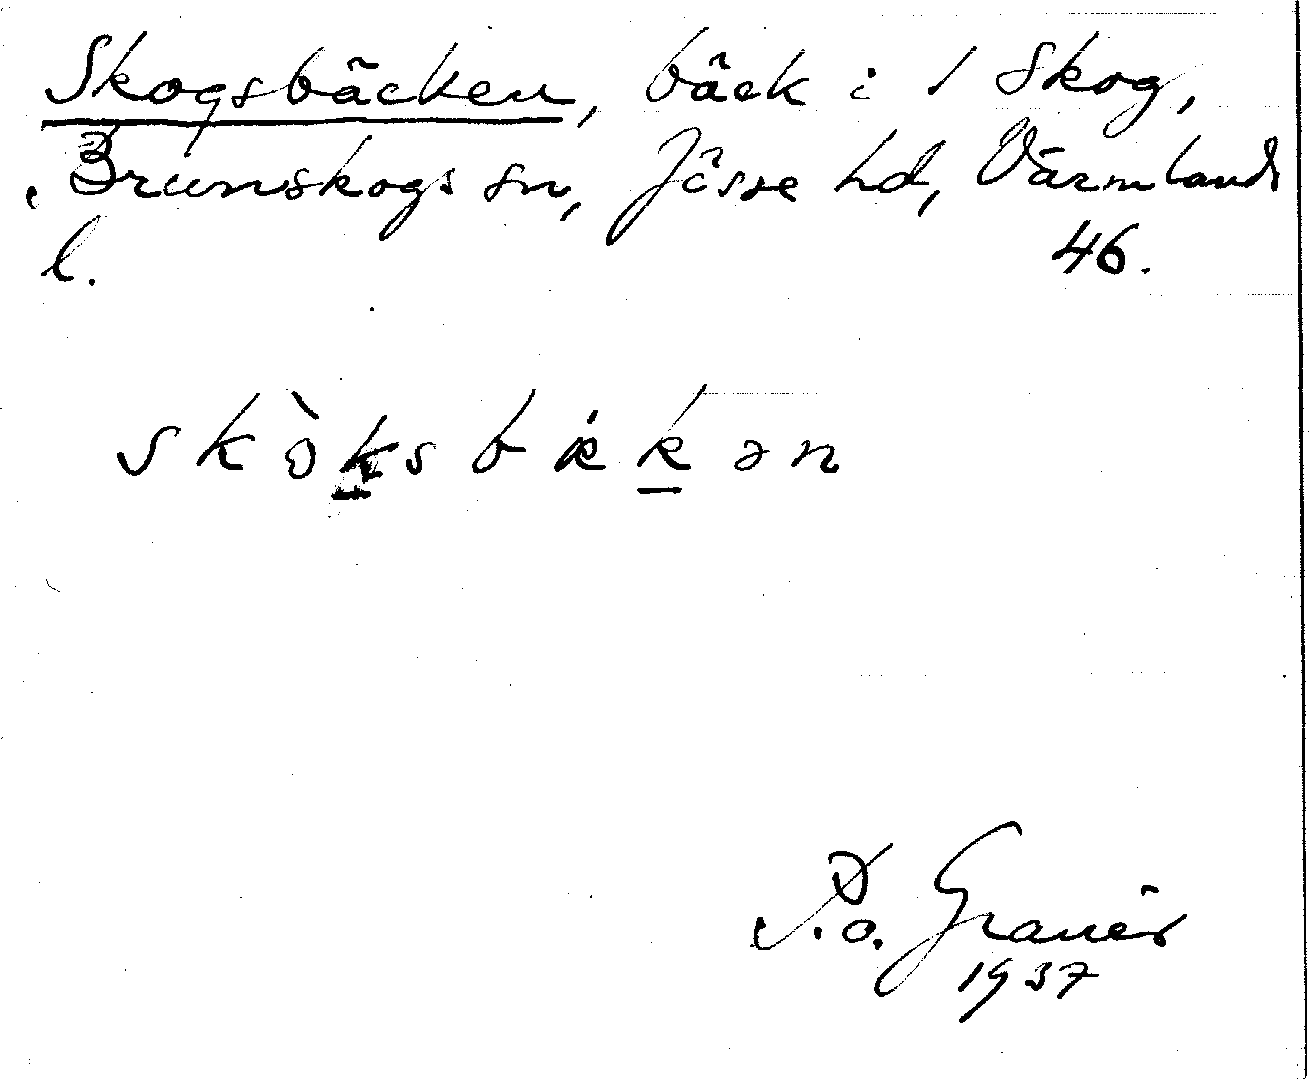 Skogsbäcken, bäck i 1 Skog,
Brunskogs sn, Jösse hd, Värmlands
l. 46.
P.O. Granér
1937